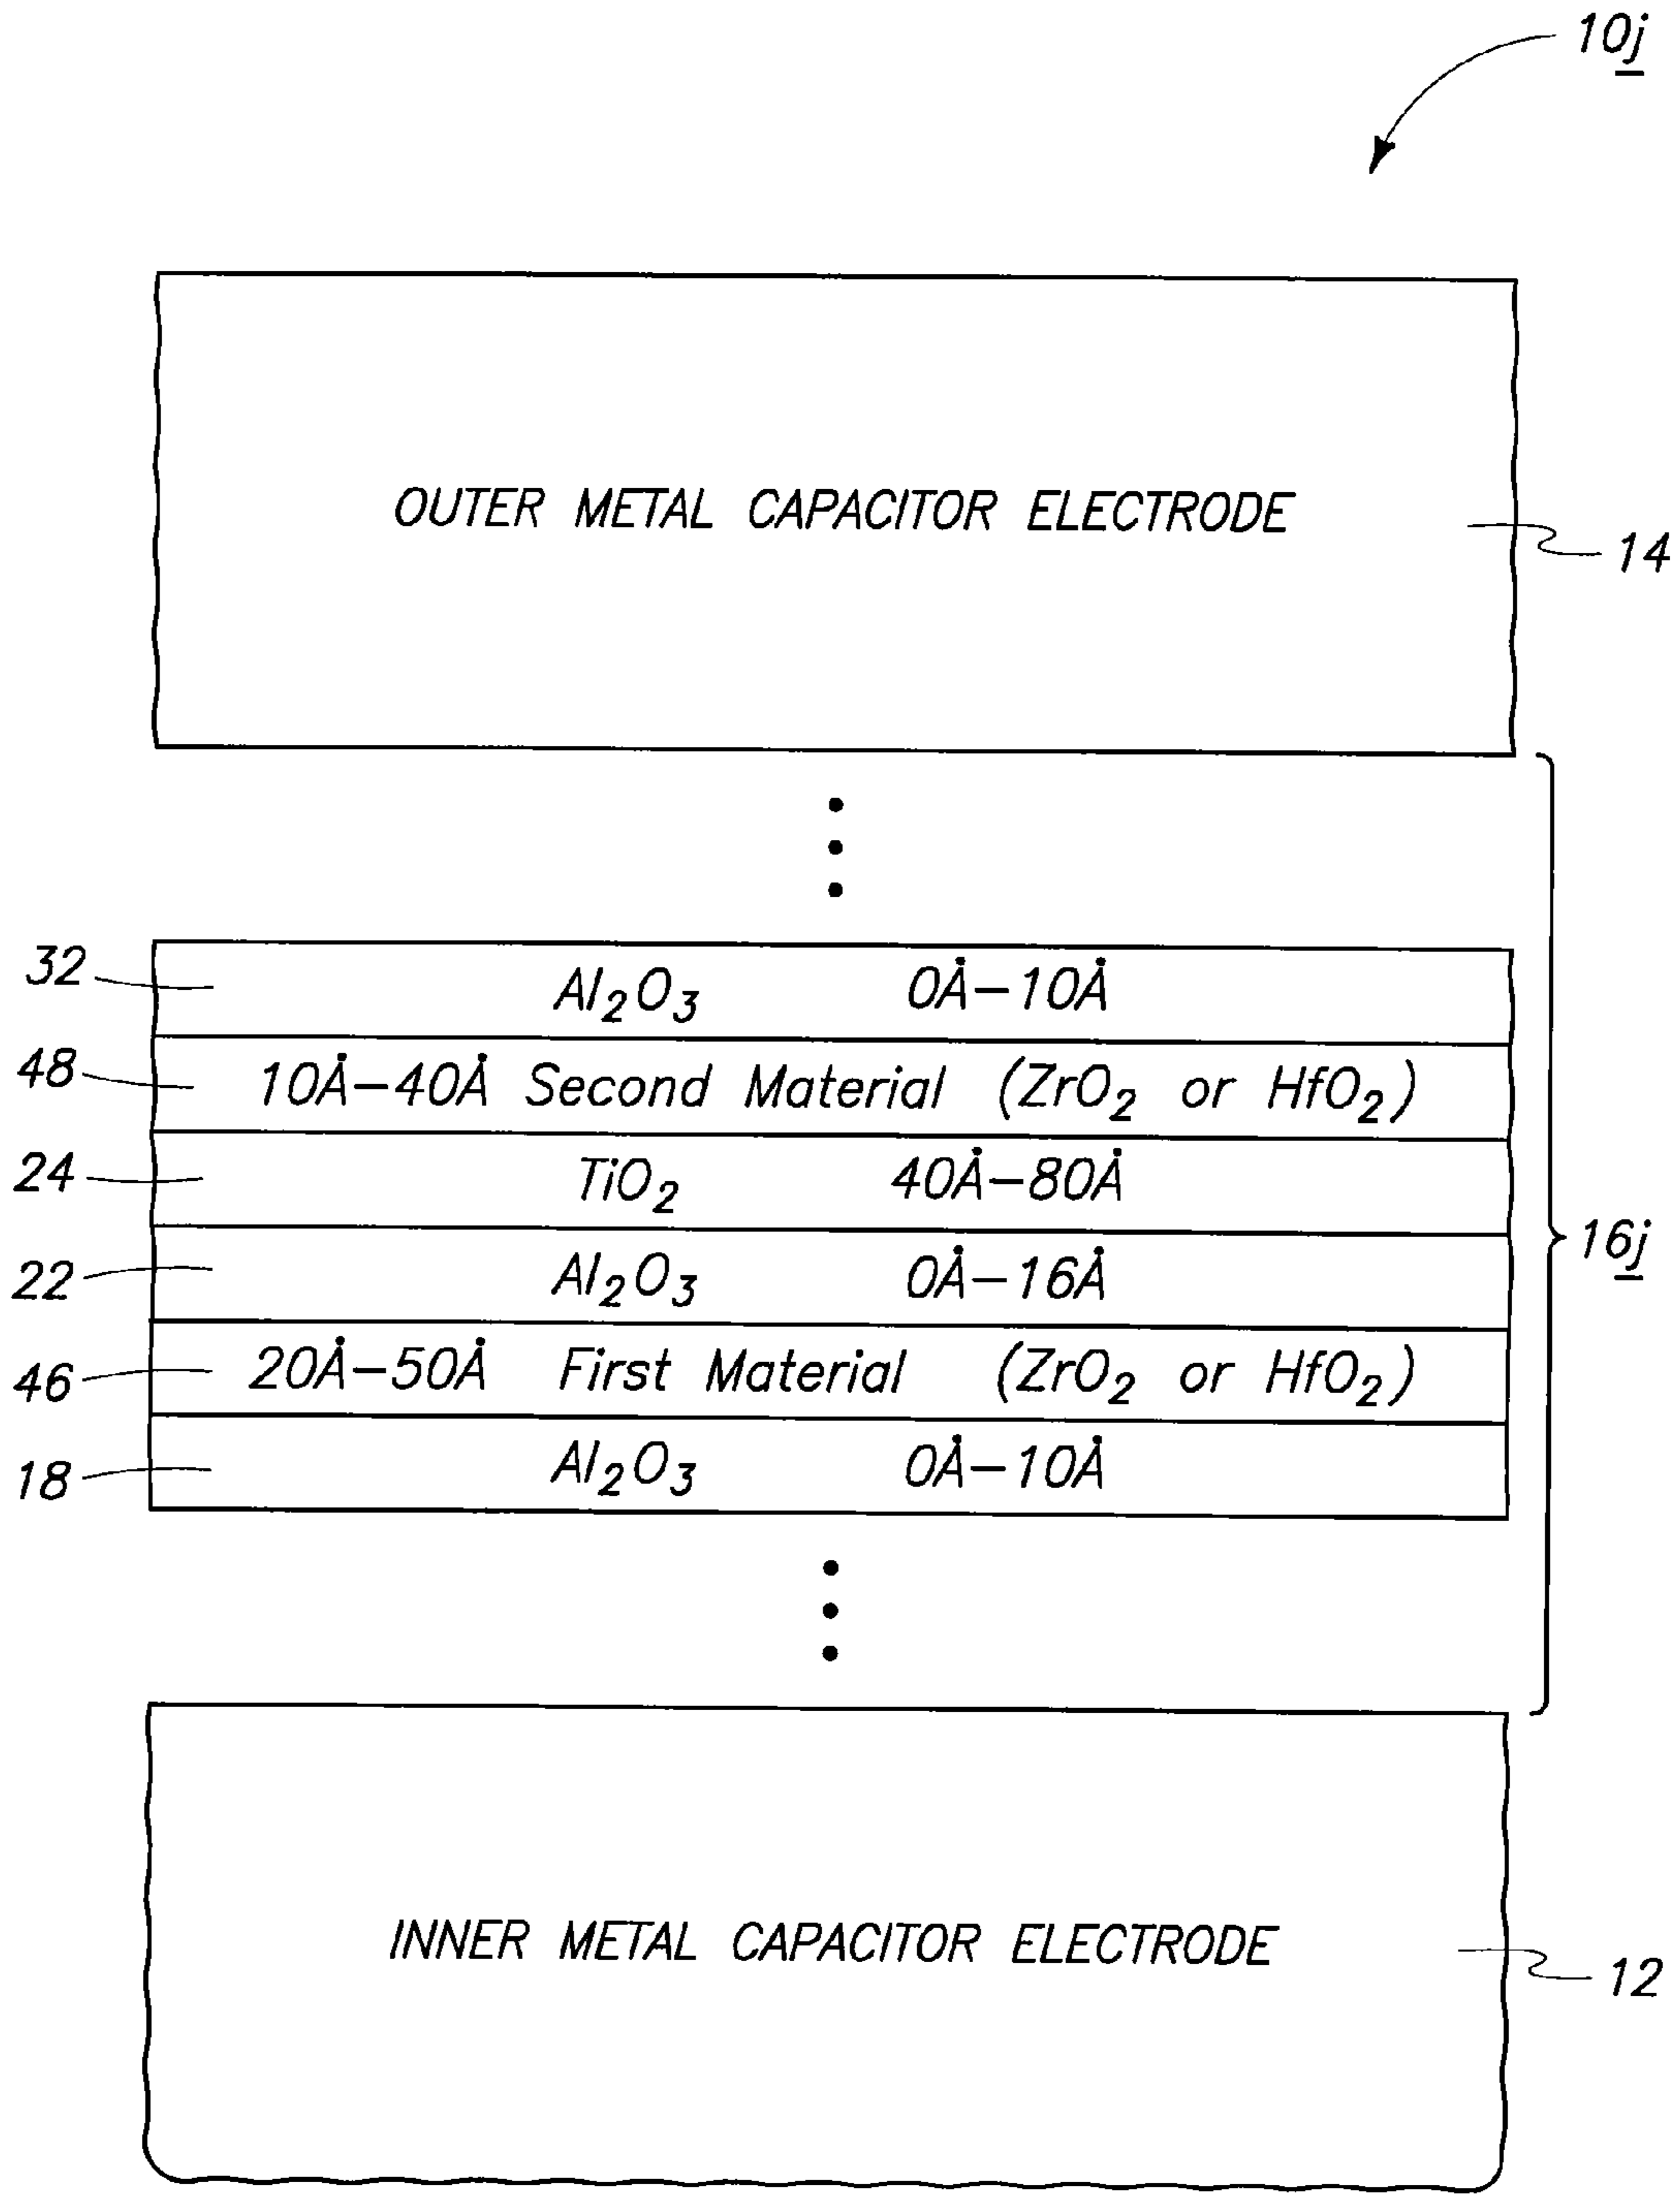 10j
OUTER METAL CAPACITOR ELECTRODE
14
32
Al₂O₃ 0Å–10Å
48
10Å–40Å Second Material (ZrO₂ or HfO₂)
24
TiO₂ 40Å–80Å
22
Al₂O₃ 0Å–16Å
16j
46
20Å–50Å First Material (ZrO₂ or HfO₂)
18
Al₂O₃ 0Å–10Å
INNER METAL CAPACITOR ELECTRODE
12